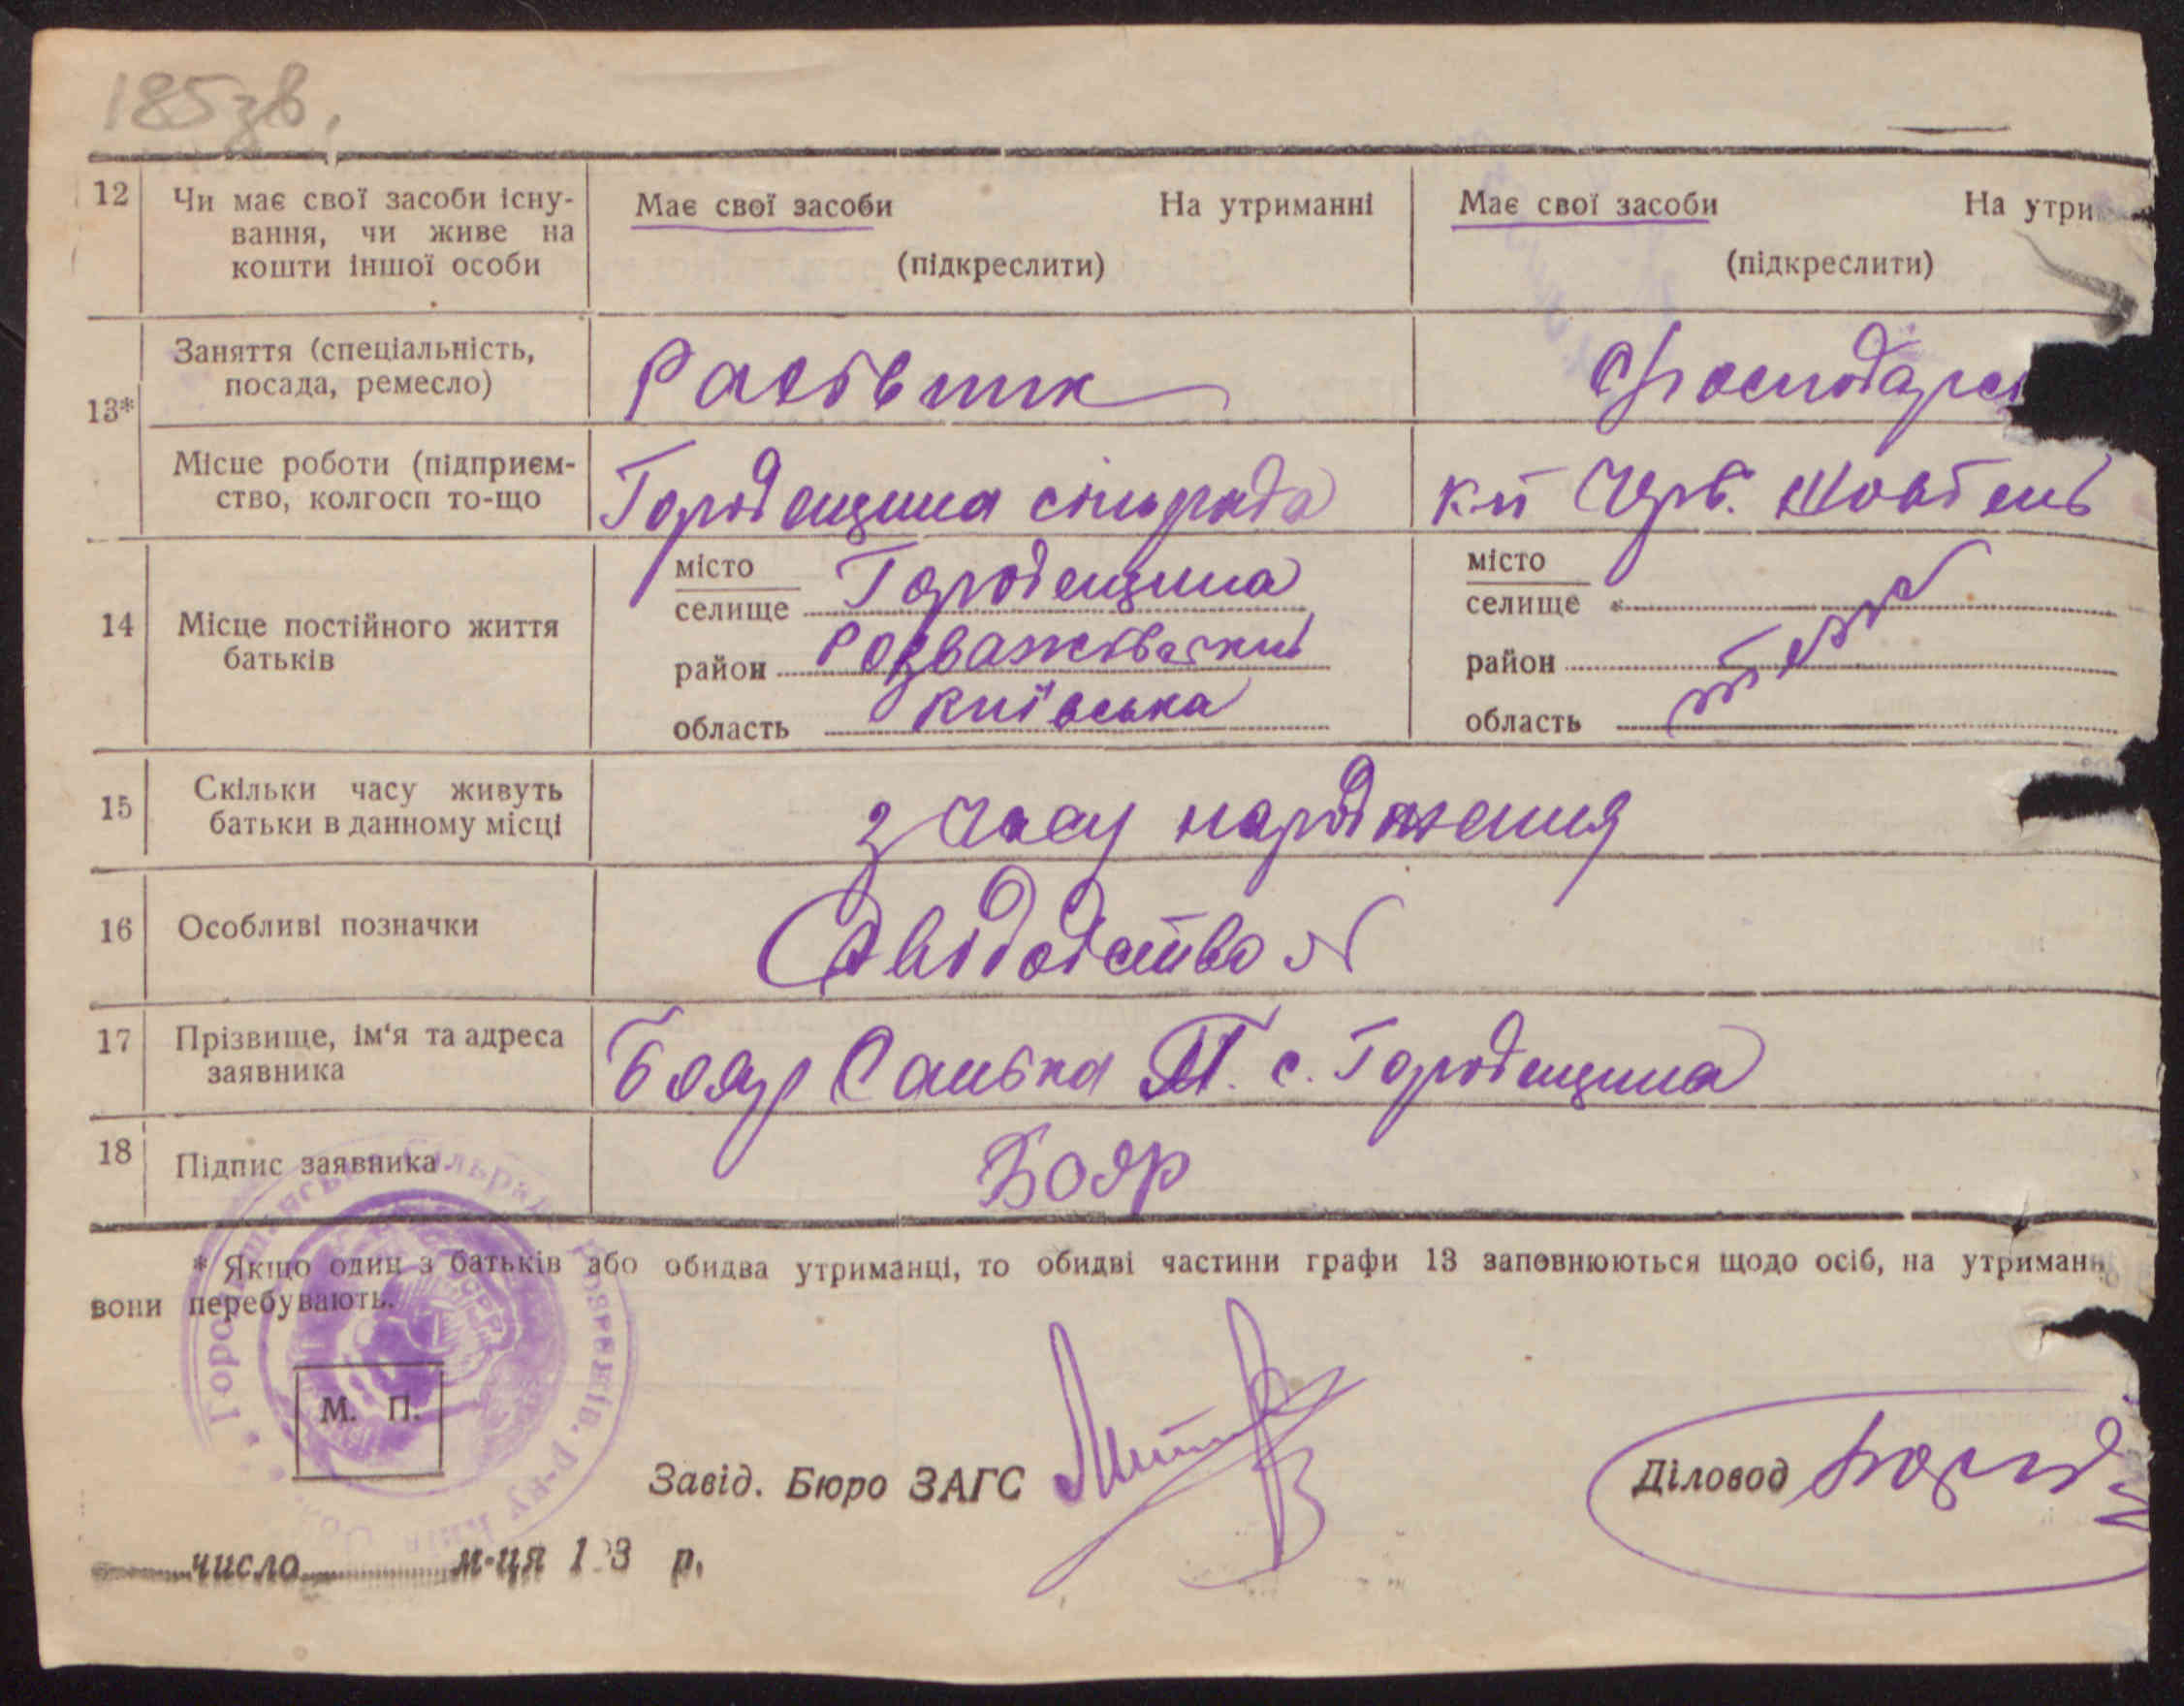 185 зв.
12 Чи має свої засоби існу-
вання, чи живе на
кошти іншої особи
Має свої засоби На утриманні
(підкреслити)
Має свої засоби На утри
(підкреслити)
13*
Заняття (спеціальність,
посада, ремесло)
Місце роботи (підприєм-
ство, колгосп то-що
Городенщина сільрада
Черв. Жовтень
14 Місце постійного життя
батьків
місто
селище Городенщина
район Розважівський
область Київська
місто
селище
район
область
15 Скільки часу живуть
батьки в данному місці
з часу народження
16 Особливі позначки
Свідоцтво N
17 Прізвище, ім‘я та адреса
заявника
Бояр Санька П. с. Городенщина
18 Підпис заявника
Бояр
* Якщо один з батьків або обидва утриманці, то обидві частини графи 13 заповнюються щодо осіб, на утриманн
вони перебувають.
М. П.
Завід. Бюро ЗАГС
Діловод
число м-ця 193 р.